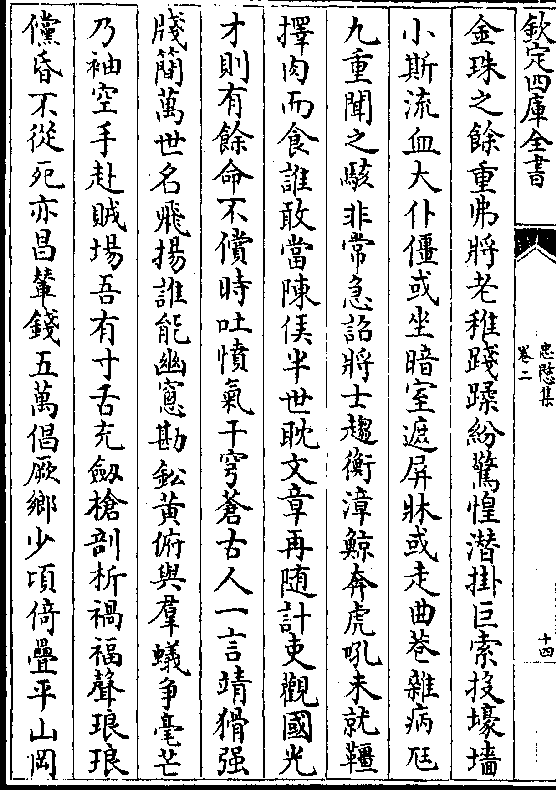 欽定四庫全書
忠愍集
卷二
十四
金珠之餘重弗將老稚踐蹂紛驚惶潜掛巨索投壕墻
小斯流血大仆僵或坐暗室遮屏牀或走曲巷雜病尫
九重聞之駭非常急詔將士趨衡漳鯨奔虎吼未就韁
擇肉而食誰敢當陳侯半世耽文章再随計吏觀國光
才則有餘命不償時吐憤氣干穹蒼古人一言靖猾强
牋簡萬世名飛揚誰能幽窻勘鈆黄俯與羣蟻争毫芒
乃袖空手赴賊場吾有寸舌充劔槍剖析禍福聲琅琅
儻昏不從死亦昌輦錢五萬倡厥鄉少頃倚疊平山岡